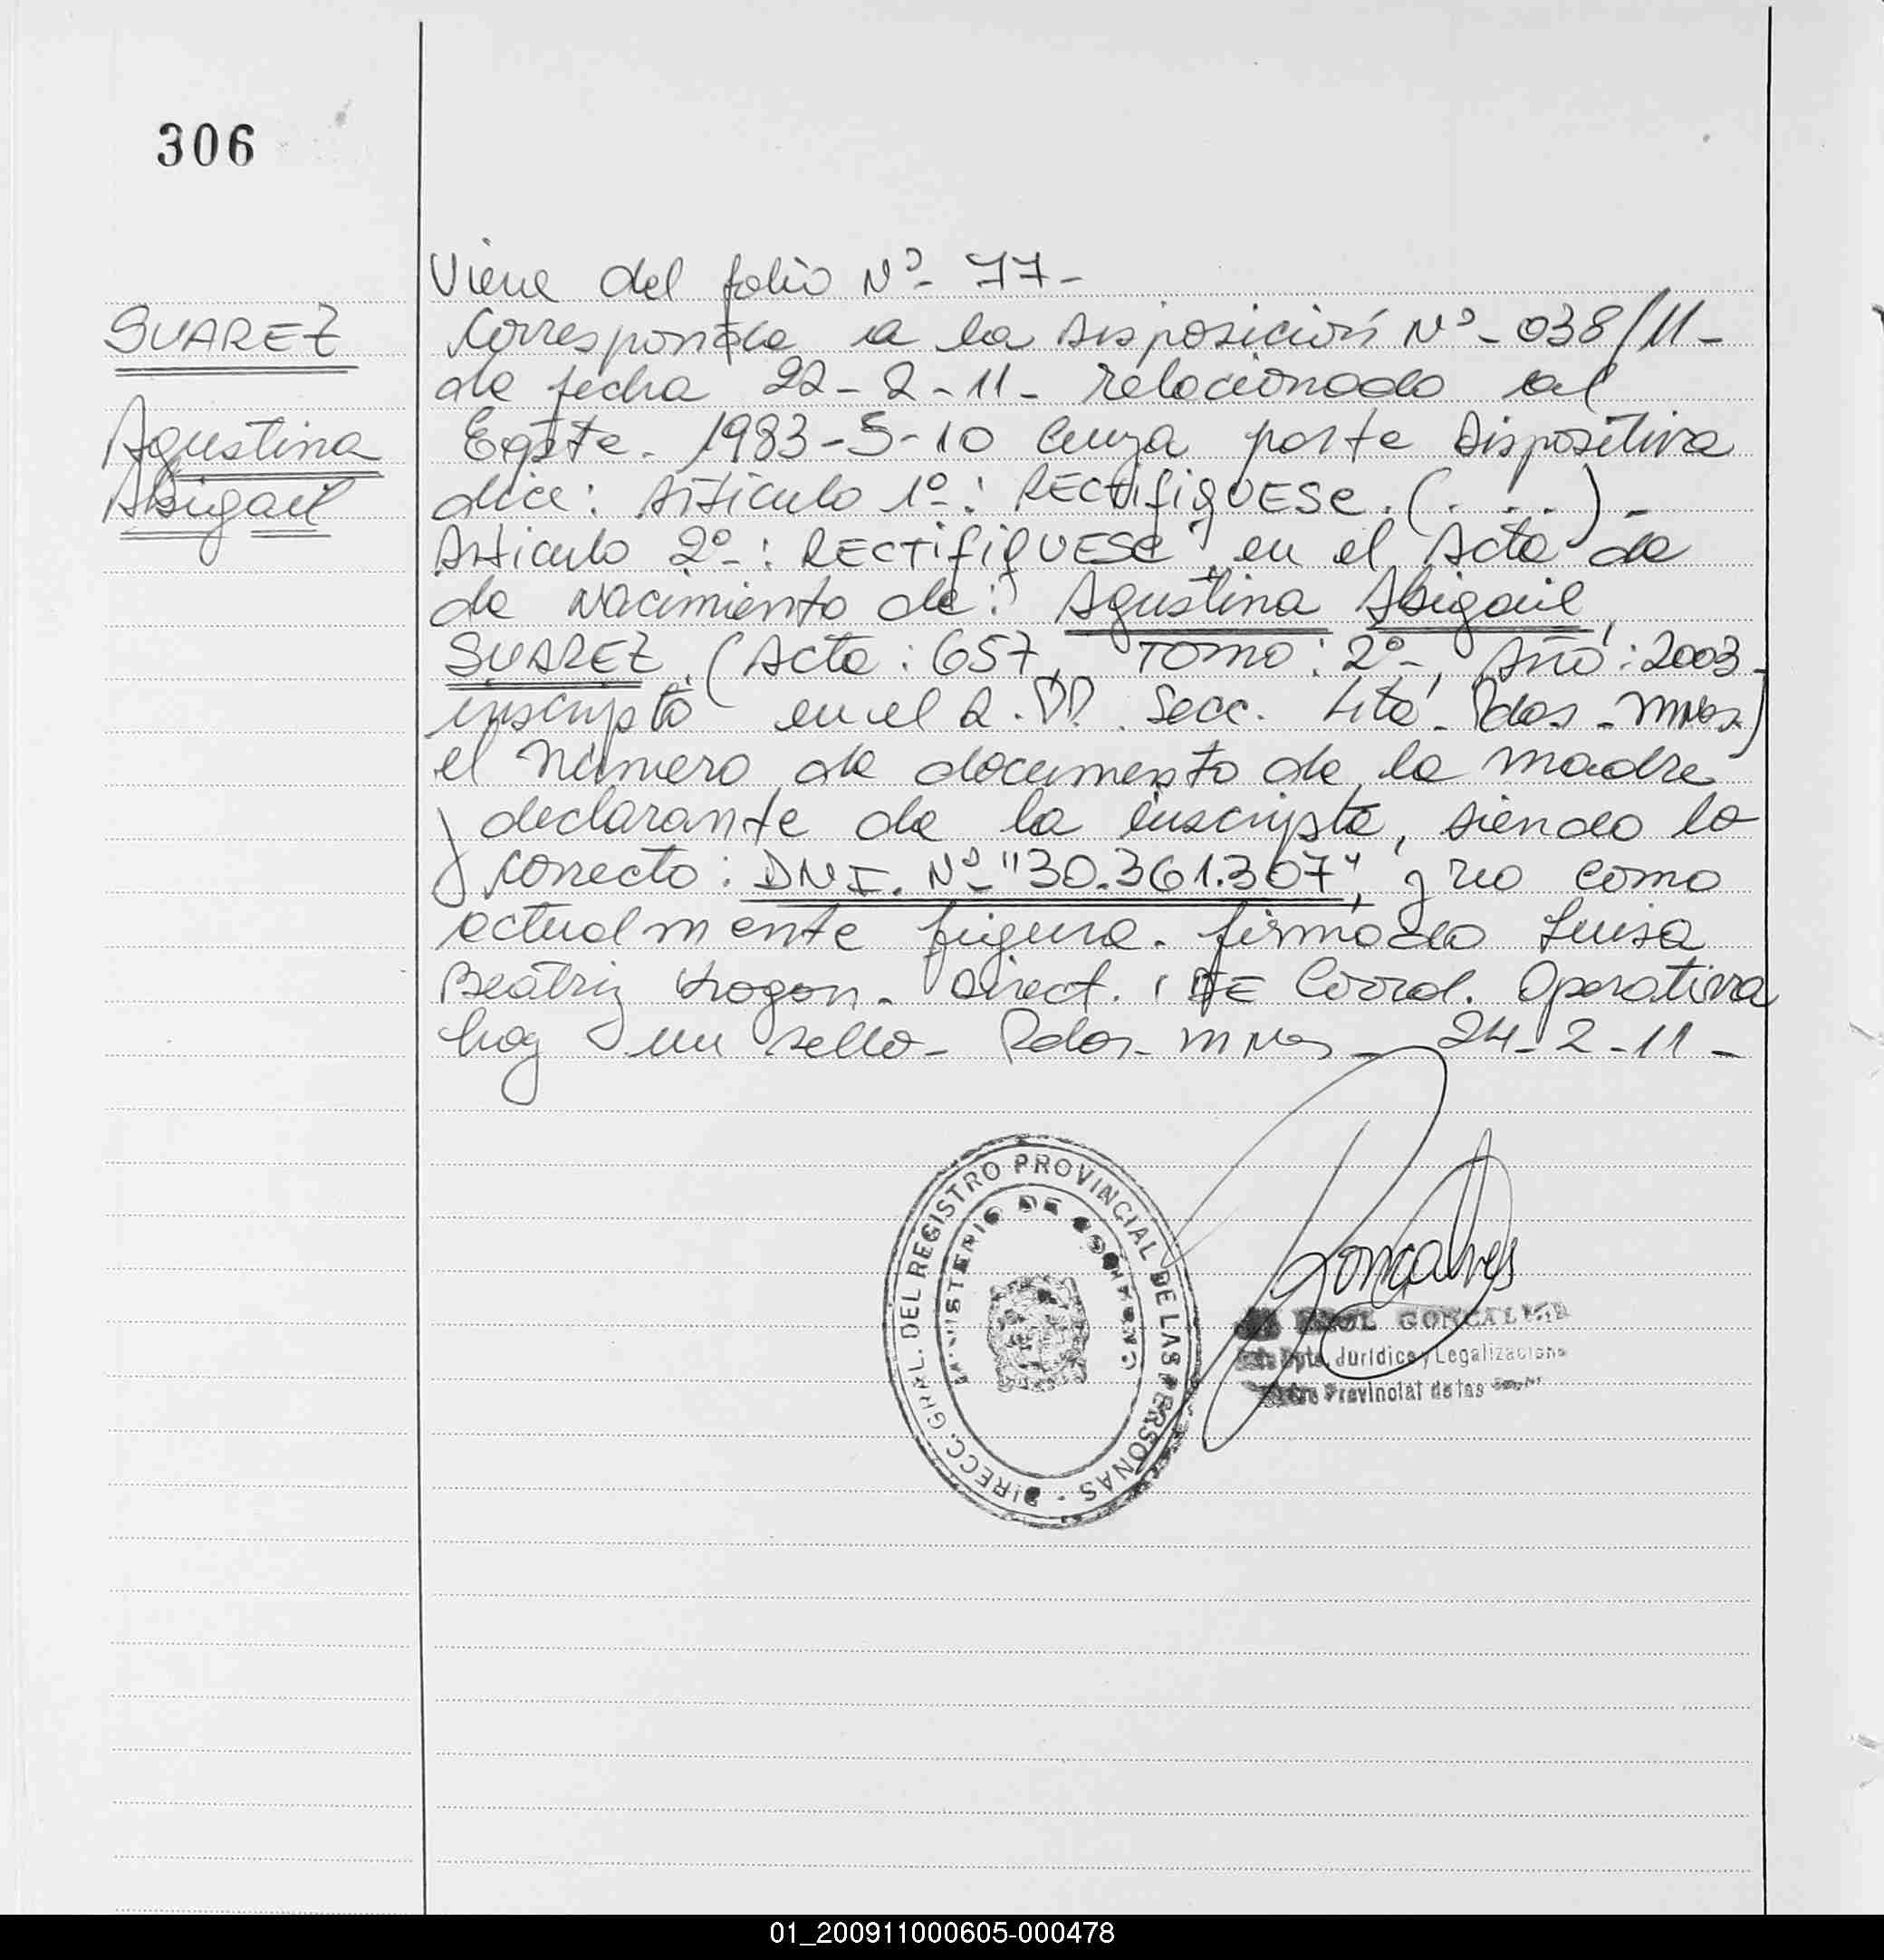 306
SUAREZ
Agustina
Abigail
Viene del folio Nº- 77-
Corresponde a la Disposición Nº- 038/11-
de fecha 22-2-11- relacionado al
Expte. 1983-S-10 cuya parte Dispositiva
dice: Artículo 1º-: RECTifiQUESE. (....)-
Artículo 2º-: RECTifiQUESE, en el Acta de
de Nacimiento de: Agustina Abigail
SUAREZ. (Acta: 657, TOMO: 2º-, Año: 2003-
inscripta en el R.PP. Secc. 4ta. Pdas-MNes.)
el número de documento de la madre
y declarante de la inscripta, siendo lo
correcto: DNI. Nº- "30.361.307", y no como
actualmente figura. firmado Luisa
Beatriz Dir­ect. DE Coord. Operativa
hay un sello- Pdas- MNes- 24-2-11-
DIRECC. GRAL. DEL REGISTRO PROVINCIAL DE LAS PERSONAS -
MINISTERIO DE GOBIERNO
Goncalves
GONCALVES
Dpto. Jurídico y Legalizaciones
Provincial de las
01_200911000605-000478